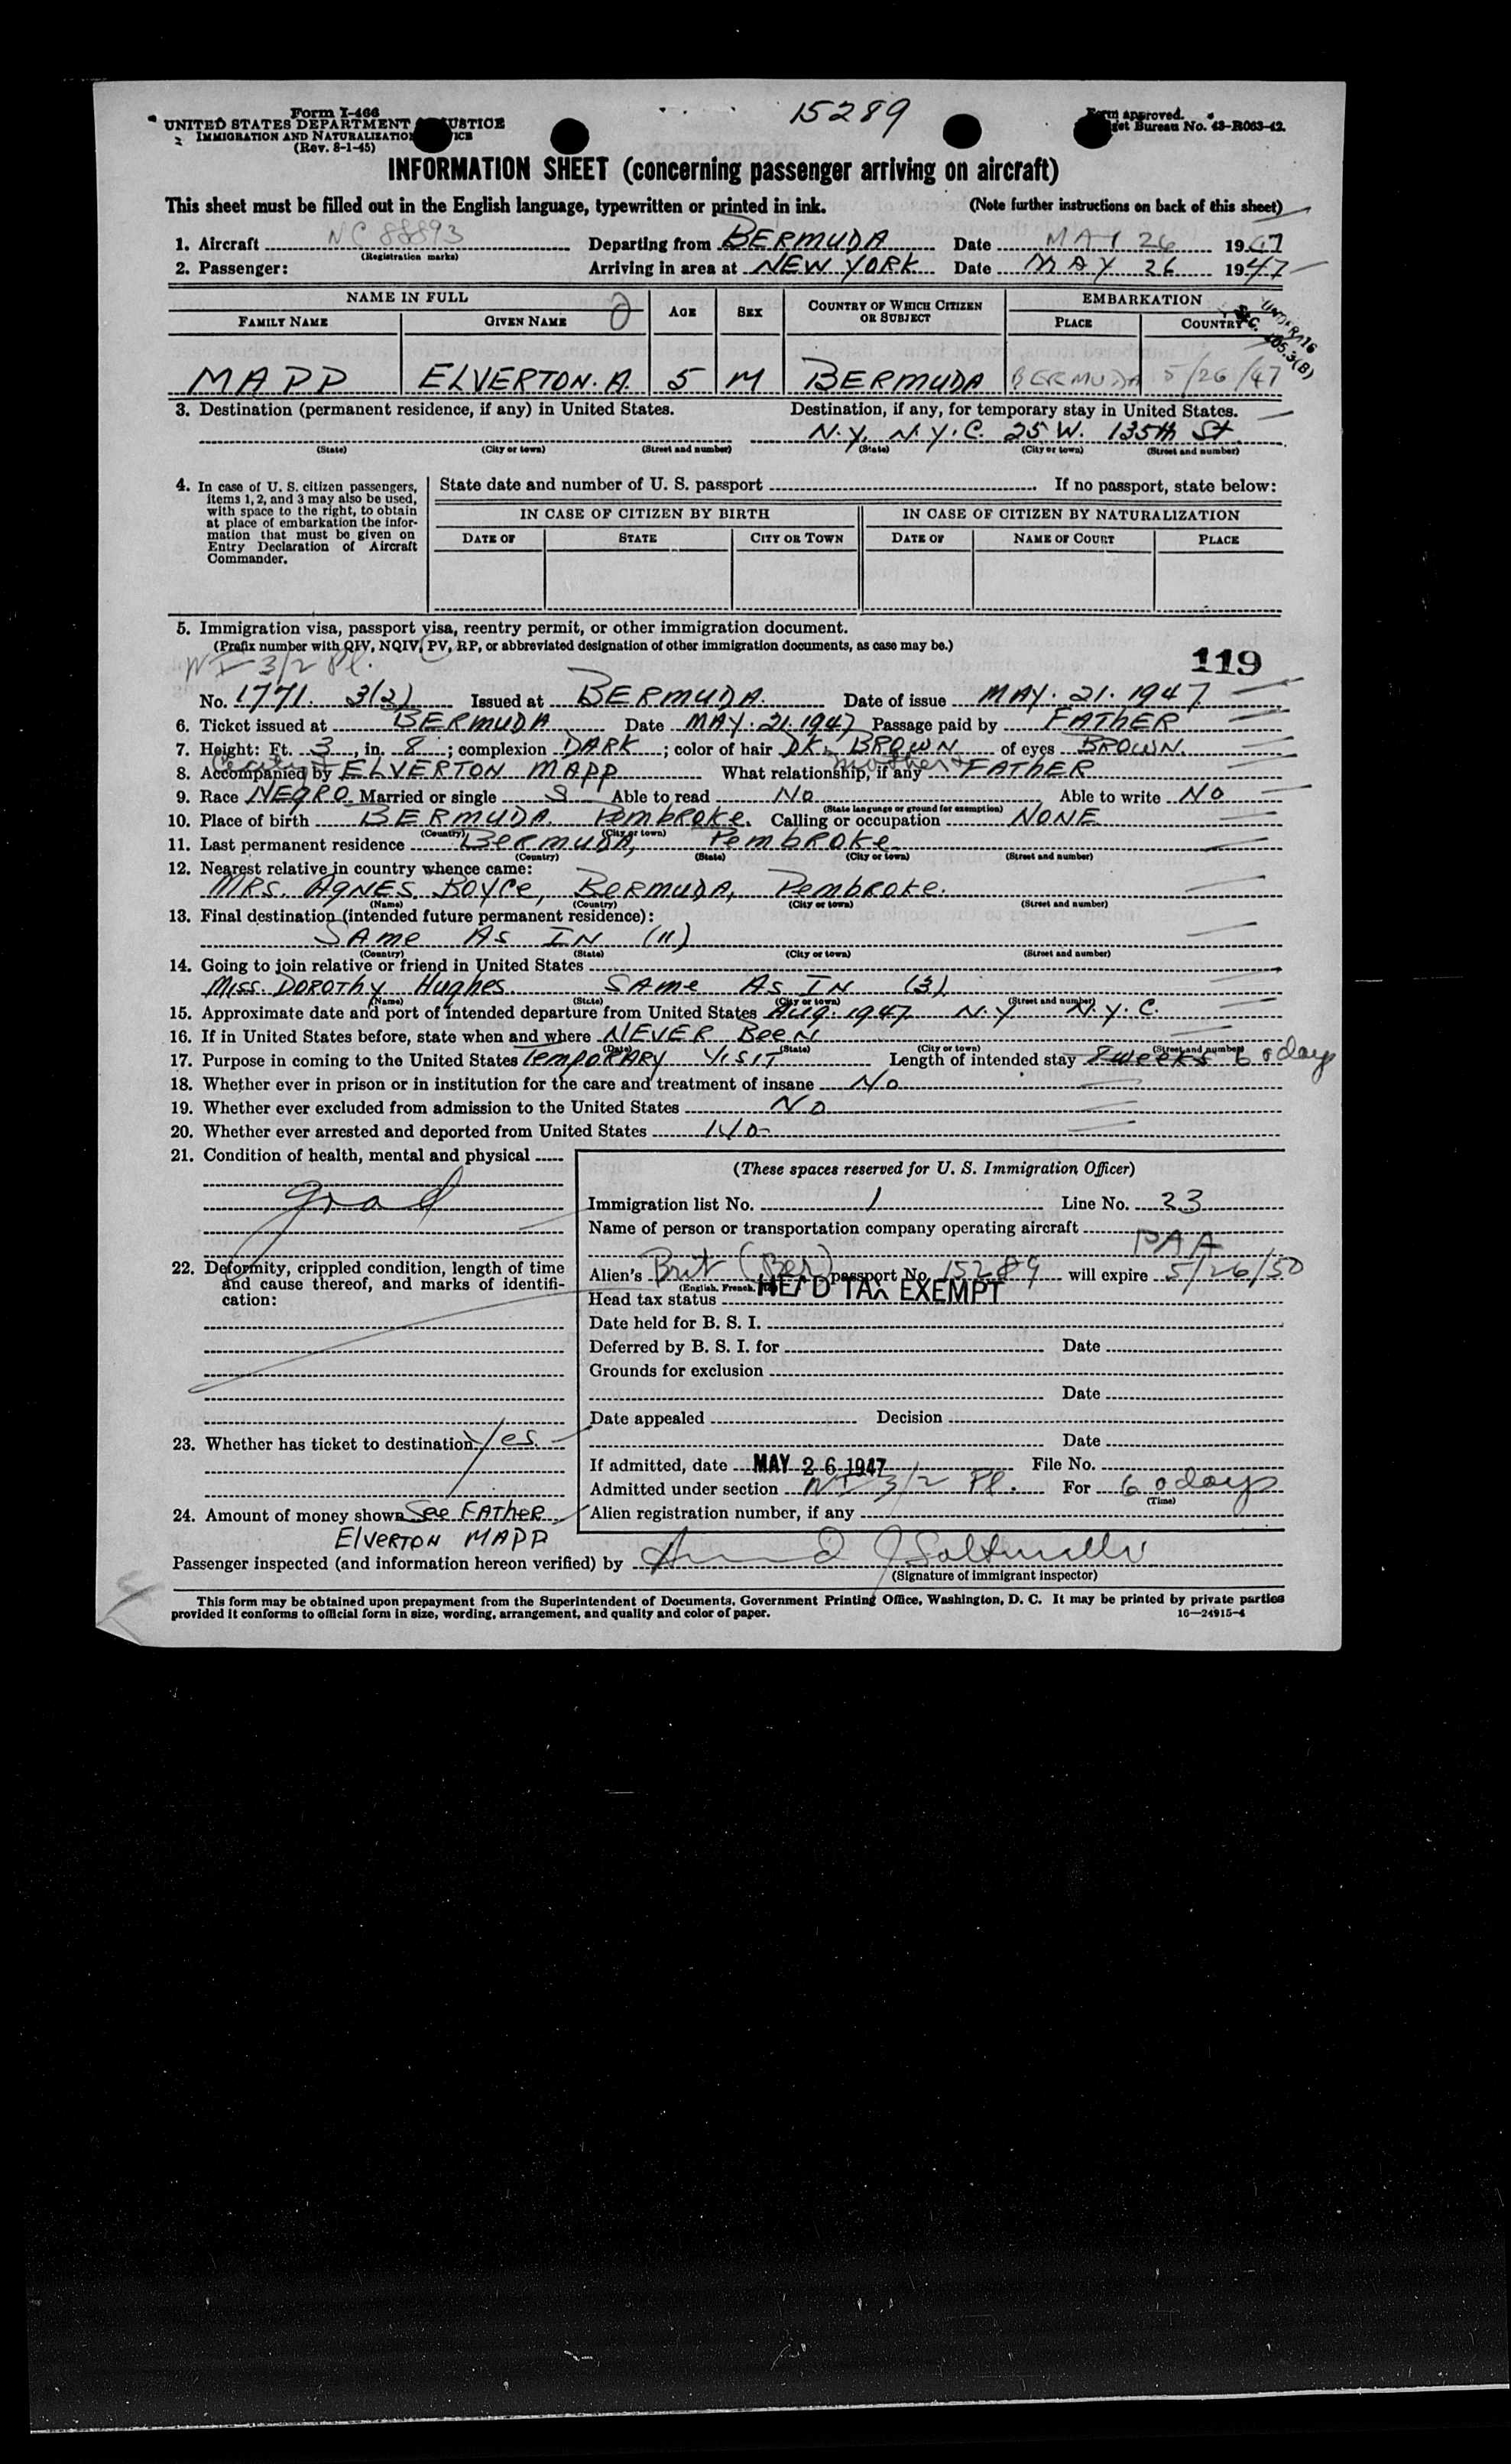 15289
Form I-466
UNITED STATES DEPARTMENT JUSTICE
IMMIGRATION AND NATURALIZATION
(Rev. 8-1-45)
Form approved.
Budget Bureau No. 43-R063-42.
INFORMATION SHEET (concerning passenger arriving on aircraft)
This sheet must be filled out in the English language, typewritten or printed in ink. (Note further instructions on back of this sheet)
1. Aircraft NC 88893 Departing from BERMUDA Date MAY 26 1947
(Registration marks)
2. Passenger: Arriving in area at NEW YORK Date MAY 26 1947
NAME IN FULL AGE SEX COUNTRY OF WHICH CITIZEN OR SUBJECT EMBARKATION
FAMILY NAME GIVEN NAME PLACE COUNTRY
UNDER 16
SEC. 105.3(B)
MAPP ELVERTON. A. 5 M BERMUDA BERMUDA 5/26/47
3. Destination (permanent residence, if any) in United States. Destination, if any, for temporary stay in United States.
N.Y. N.Y.C. 25 W. 135th St
(State) (City or town) (Street and number) (State) (City or town) (Street and number)
4. In case of U. S. citizen passengers, items 1, 2, and 3 may also be used, with space to the right, to obtain at place of embarkation the information that must be given on Entry Declaration of Aircraft Commander.
State date and number of U. S. passport If no passport, state below:
IN CASE OF CITIZEN BY BIRTH IN CASE OF CITIZEN BY NATURALIZATION
DATE OF STATE CITY OR TOWN DATE OF NAME OF COURT PLACE
5. Immigration visa, passport visa, reentry permit, or other immigration document.
(Prefix number with QIV, NQIV, PV, RP, or abbreviated designation of other immigration documents, as case may be.)
NI 3/2 Pl.
119
No. 1771. 3(2) Issued at BERMUDA. Date of issue MAY. 21. 1947
6. Ticket issued at BERMUDA Date MAY. 21. 1947 Passage paid by FATHER
7. Height: Ft. 3, in. 8; complexion DARK; color of hair DK. BROWN of eyes BROWN.
Cecily + mother +
8. Accompanied by ELVERTON MAPP What relationship, if any FATHER
9. Race NEGRO Married or single S Able to read No Able to write No
(State language or ground for exemption)
10. Place of birth BERMUDA. Pembroke. Calling or occupation NONE
(Country) (City or town)
11. Last permanent residence Bermuda, Pembroke
(Country) (State) (City or town) (Street and number)
12. Nearest relative in country whence came:
MRS. AGNES BOYCE, BERMUDA, Pembroke.
(Name) (Country) (City or town) (Street and number)
13. Final destination (intended future permanent residence):
SAme As IN (11)
(Country) (State) (City or town) (Street and number)
14. Going to join relative or friend in United States
MISS. DOROTHY Hughes. SAme As IN (3)
(Name) (State) (City or town) (Street and number)
15. Approximate date and port of intended departure from United States Aug. 1947 N.Y N.Y.C.
16. If in United States before, state when and where NEVER BeeN
(Date) (State) (City or town) (Street and number)
17. Purpose in coming to the United States TempORARY VISIT Length of intended stay 8 weeks 60 days
18. Whether ever in prison or in institution for the care and treatment of insane No
19. Whether ever excluded from admission to the United States No
20. Whether ever arrested and deported from United States No
21. Condition of health, mental and physical
good
22. Deformity, crippled condition, length of time and cause thereof, and marks of identification:
23. Whether has ticket to destination Yes.
24. Amount of money shown See FATHER
ELVERTON MAPP
(These spaces reserved for U. S. Immigration Officer)
Immigration list No. 1 Line No. 23
Name of person or transportation company operating aircraft
PAA
Alien's Brit (Ber) passport No. 15289 will expire 5/26/50
(English, French,
Head tax status HEAD TAX EXEMPT
Date held for B. S. I.
Deferred by B. S. I. for Date
Grounds for exclusion
Date
Date appealed Decision
Date
If admitted, date MAY 26 1947 File No.
Admitted under section NI 3/2 Pl. For 60 days
(Time)
Alien registration number, if any
Passenger inspected (and information hereon verified) by
(Signature of immigrant inspector)
This form may be obtained upon prepayment from the Superintendent of Documents, Government Printing Office, Washington, D. C. It may be printed by private parties
provided it conforms to official form in size, wording, arrangement, and quality and color of paper. 16—24915-4